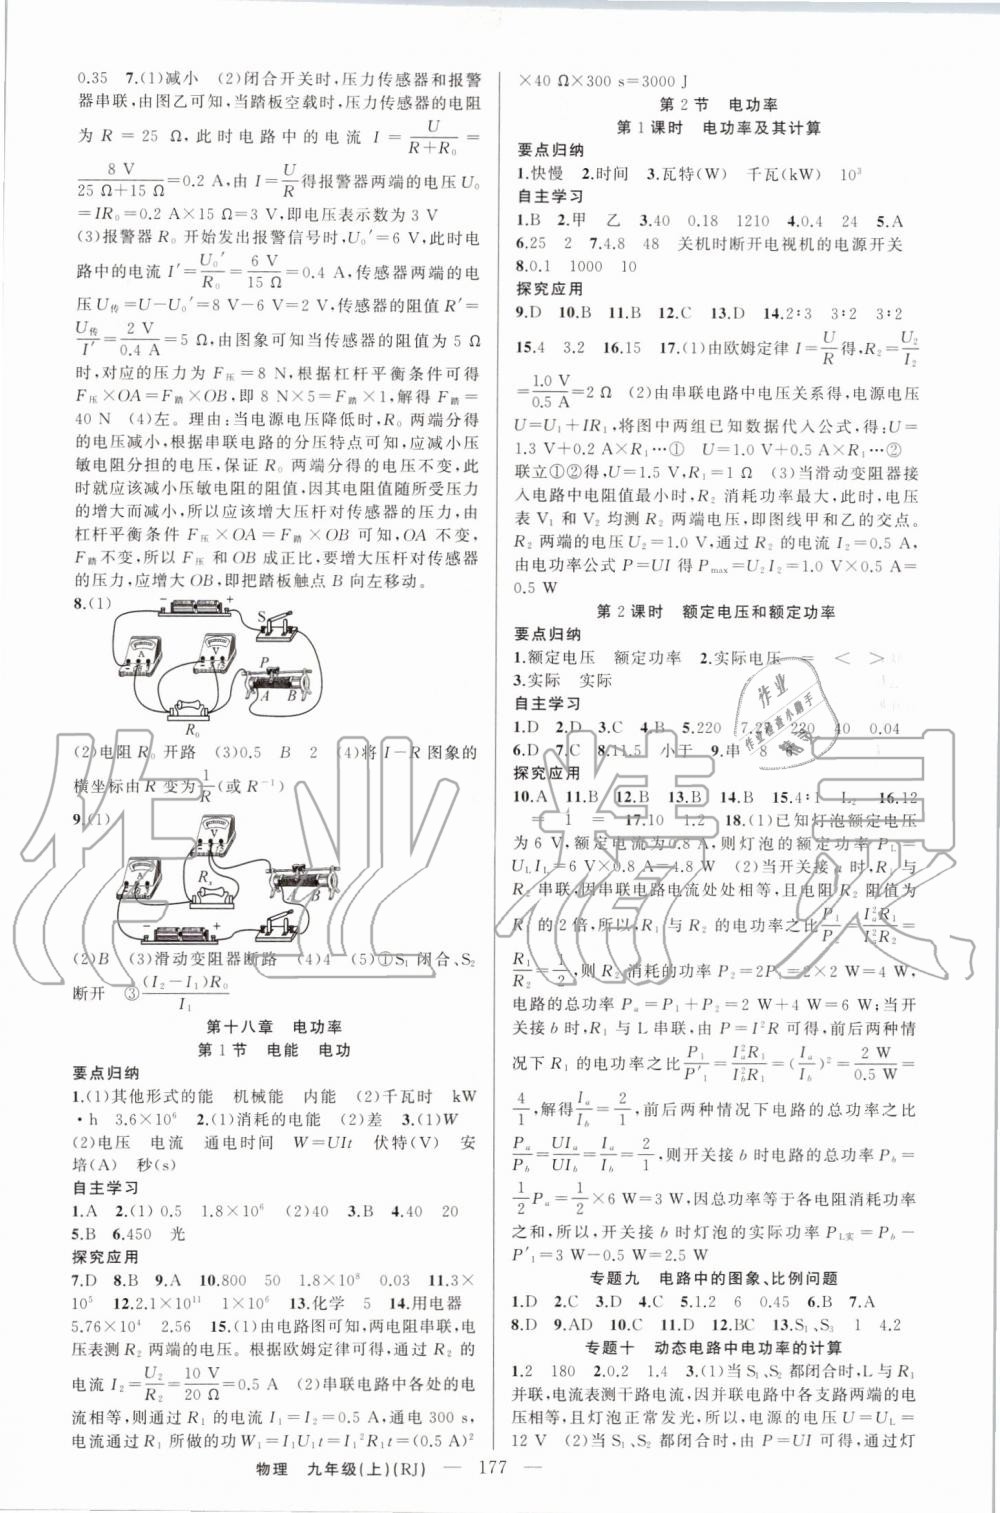 0.35　7.(1)减小　(2)闭合开关时,压力传感器和报警
器串联,由图乙可知,当踏板空载时,压力传感器的电阻
为 R = 25 Ω,此时电路中的电流 I = U/(R+R₀) =
8 V/(25 Ω+15 Ω)=0.2 A,由 I=U/R得报警器两端的电压 U₀
=IR₀=0.2 A×15 Ω=3 V,即电压表示数为 3 V
(3)报警器 R₀ 开始发出报警信号时,U₀′=6 V,此时电
路中的电流 I′=U₀′/R₀=6 V/15 Ω=0.4 A,传感器两端的电
压 U传=U-U₀′=8 V-6 V=2 V,传感器的阻值 R′=
U传/I′=2 V/0.4 A=5 Ω,由图象可知当传感器的阻值为 5 Ω
时,对应的压力为 F压=8 N,根据杠杆平衡条件可得
F压×OA=F踏×OB,即 8 N×5=F踏×1,解得 F踏=
40 N　(4)左。理由:当电源电压降低时,R₀ 两端分得
的电压减小,根据串联电路的分压特点可知,应减小压
敏电阻分担的电压,保证 R₀ 两端分得的电压不变,此
时就应该减小压敏电阻的阻值,因其电阻值随所受压力
的增大而减小,所以应该增大压杆对传感器的压力,由
杠杆平衡条件 F压×OA=F踏×OB 可知,OA 不变,
F踏不变,所以 F压和 OB 成正比,要增大压杆对传感器
的压力,应增大 OB,即把踏板触点 B 向左移动。
8.(1)
− +
S
A
V
P
A B
R₀
(2)电阻 R₀ 开路　(3)0.5　B　2　(4)将 I－R 图象的
横坐标由 R 变为1/R(或 R⁻¹)
9.(1)
V
A
R₁
A B
− +
(2)B　(3)滑动变阻器断路　(4)4　(5)①S₁ 闭合、S₂
断开　③(I₂-I₁)R₀/I₁
第十八章　电功率
第 1 节　电能　电功
要点归纳
1.(1)其他形式的能　机械能　内能　(2)千瓦时　kW
·h　3.6×10⁶　2.(1)消耗的电能　(2)差　3.(1)W
(2)电压　电流　通电时间　W=UIt　伏特(V)　安
培(A)　秒(s)
自主学习
1.A　2.(1)0.5　1.8×10⁶　(2)40　3.B　4.40　20
5.B　6.450　光
探究应用
7.D　8.B　9.A　10.800　50　1.8×10⁶　0.03　11.3×
10⁵　12.2.1×10¹¹　1×10⁶　13.化学　5　14.用电器
5.76×10⁴　2.56　15.(1)由电路图可知,两电阻串联,电
压表测 R₂ 两端的电压。根据欧姆定律可得,电路中的
电流 I₂=U₂/R₂=10 V/20 Ω=0.5 A　(2)串联电路中各处的电
流相等,则通过 R₁ 的电流 I₁=I₂=0.5 A,通电 300 s,
电流通过 R₁ 所做的功 W₁=I₁U₁t=I₁²R₁t=(0.5 A)²
×40 Ω×300 s=3000 J
第 2 节　电功率
第 1 课时　电功率及其计算
要点归纳
1.快慢　2.时间　3.瓦特(W)　千瓦(kW)　10³
自主学习
1.B　2.甲　乙　3.40　0.18　1210　4.0.4　24　5.A
6.25　2　7.4.8　48　关机时断开电视机的电源开关
8.0.1　1000　10
探究应用
9.D　10.B　11.B　12.C　13.D　14.2∶3　3∶2　3∶2
15.4　3.2　16.15　17.(1)由欧姆定律 I=U/R得,R₂=U₂/I₂
=1.0 V/0.5 A=2 Ω　(2)由串联电路中电压关系得,电源电压
U=U₁+IR₁,将图中两组已知数据代入公式,得:U=
1.3 V+0.2 A×R₁…①　U=1.0 V+0.5 A×R₁…②
联立①②得,U=1.5 V,R₁=1 Ω　(3)当滑动变阻器接
入电路中电阻值最小时,R₂ 消耗功率最大,此时,电压
表 V₁ 和 V₂ 均测 R₂ 两端电压,即图线甲和乙的交点。
R₂ 两端的电压 U₂=1.0 V,通过 R₂ 的电流 I₂=0.5 A,
由电功率公式 P=UI 得 Pmax=U₂I₂=1.0 V×0.5 A=
0.5 W
第 2 课时　额定电压和额定功率
要点归纳
1.额定电压　额定功率　2.实际电压　=　<　>
3.实际　实际
自主学习
1.D　2.D　3.C　4.B　5.220　7.2　220　40　0.04
6.D　7.C　8.11.5　小于　9.串　8
探究应用
10.A　11.B　12.B　13.B　14.B　15.4∶1　L₂　16.12
=　1　=　17.10　1.2　18.(1)已知灯泡额定电压
为 6 V,额定电流为 0.8 A,则灯泡的额定功率 PL=
ULIL=6 V×0.8 A=4.8 W　(2)当开关接 a 时,R₁ 与
R₂ 串联,因串联电路电流处处相等,且电阻 R₂ 阻值为
R₁ 的 2 倍,所以,R₁ 与 R₂ 的电功率之比P₁/P₂=Iₐ²R₁/Iₐ²R₂=
R₁/R₂=1/2,则 R₂ 消耗的功率 P₂=2P₁=2×2 W=4 W,
电路的总功率 Pₐ=P₁+P₂=2 W+4 W=6 W;当开
关接 b 时,R₁ 与 L 串联,由 P=I²R 可得,前后两种情
况下 R₁ 的电功率之比P₁/P′₁=Iₐ²R₁/I_b²R₁=(Iₐ/I_b)²=2 W/0.5 W=
4/1,解得Iₐ/I_b=2/1,前后两种情况下电路的总功率之比
Pₐ/P_b=UIₐ/UI_b=Iₐ/I_b=2/1,则开关接 b 时电路的总功率 P_b=
1/2Pₐ=1/2×6 W=3 W,因总功率等于各电阻消耗功率
之和,所以,开关接 b 时灯泡的实际功率 PL实=P_b-
P′₁=3 W-0.5 W=2.5 W
专题九　电路中的图象、比例问题
1.D　2.C　3.D　4.C　5.1.2　6　0.45　6.B　7.A
8.D　9.AD　10.C　11.D　12.BC　13.S₁、S₃　1　4.2
专题十　动态电路中电功率的计算
1.2　180　2.0.2　1.4　3.(1)当 S₁、S₂ 都闭合时,L 与 R₁
并联,电流表测干路电流,因并联电路中各支路两端的电
压相等,且灯泡正常发光,所以,电源的电压 U=UL=
12 V　(2)当 S₁、S₂ 都闭合时,由 P=UI 可得,通过灯
物理　九年级(上)(RJ)　— 177 —
作业精灵
作业
作业检查小助手